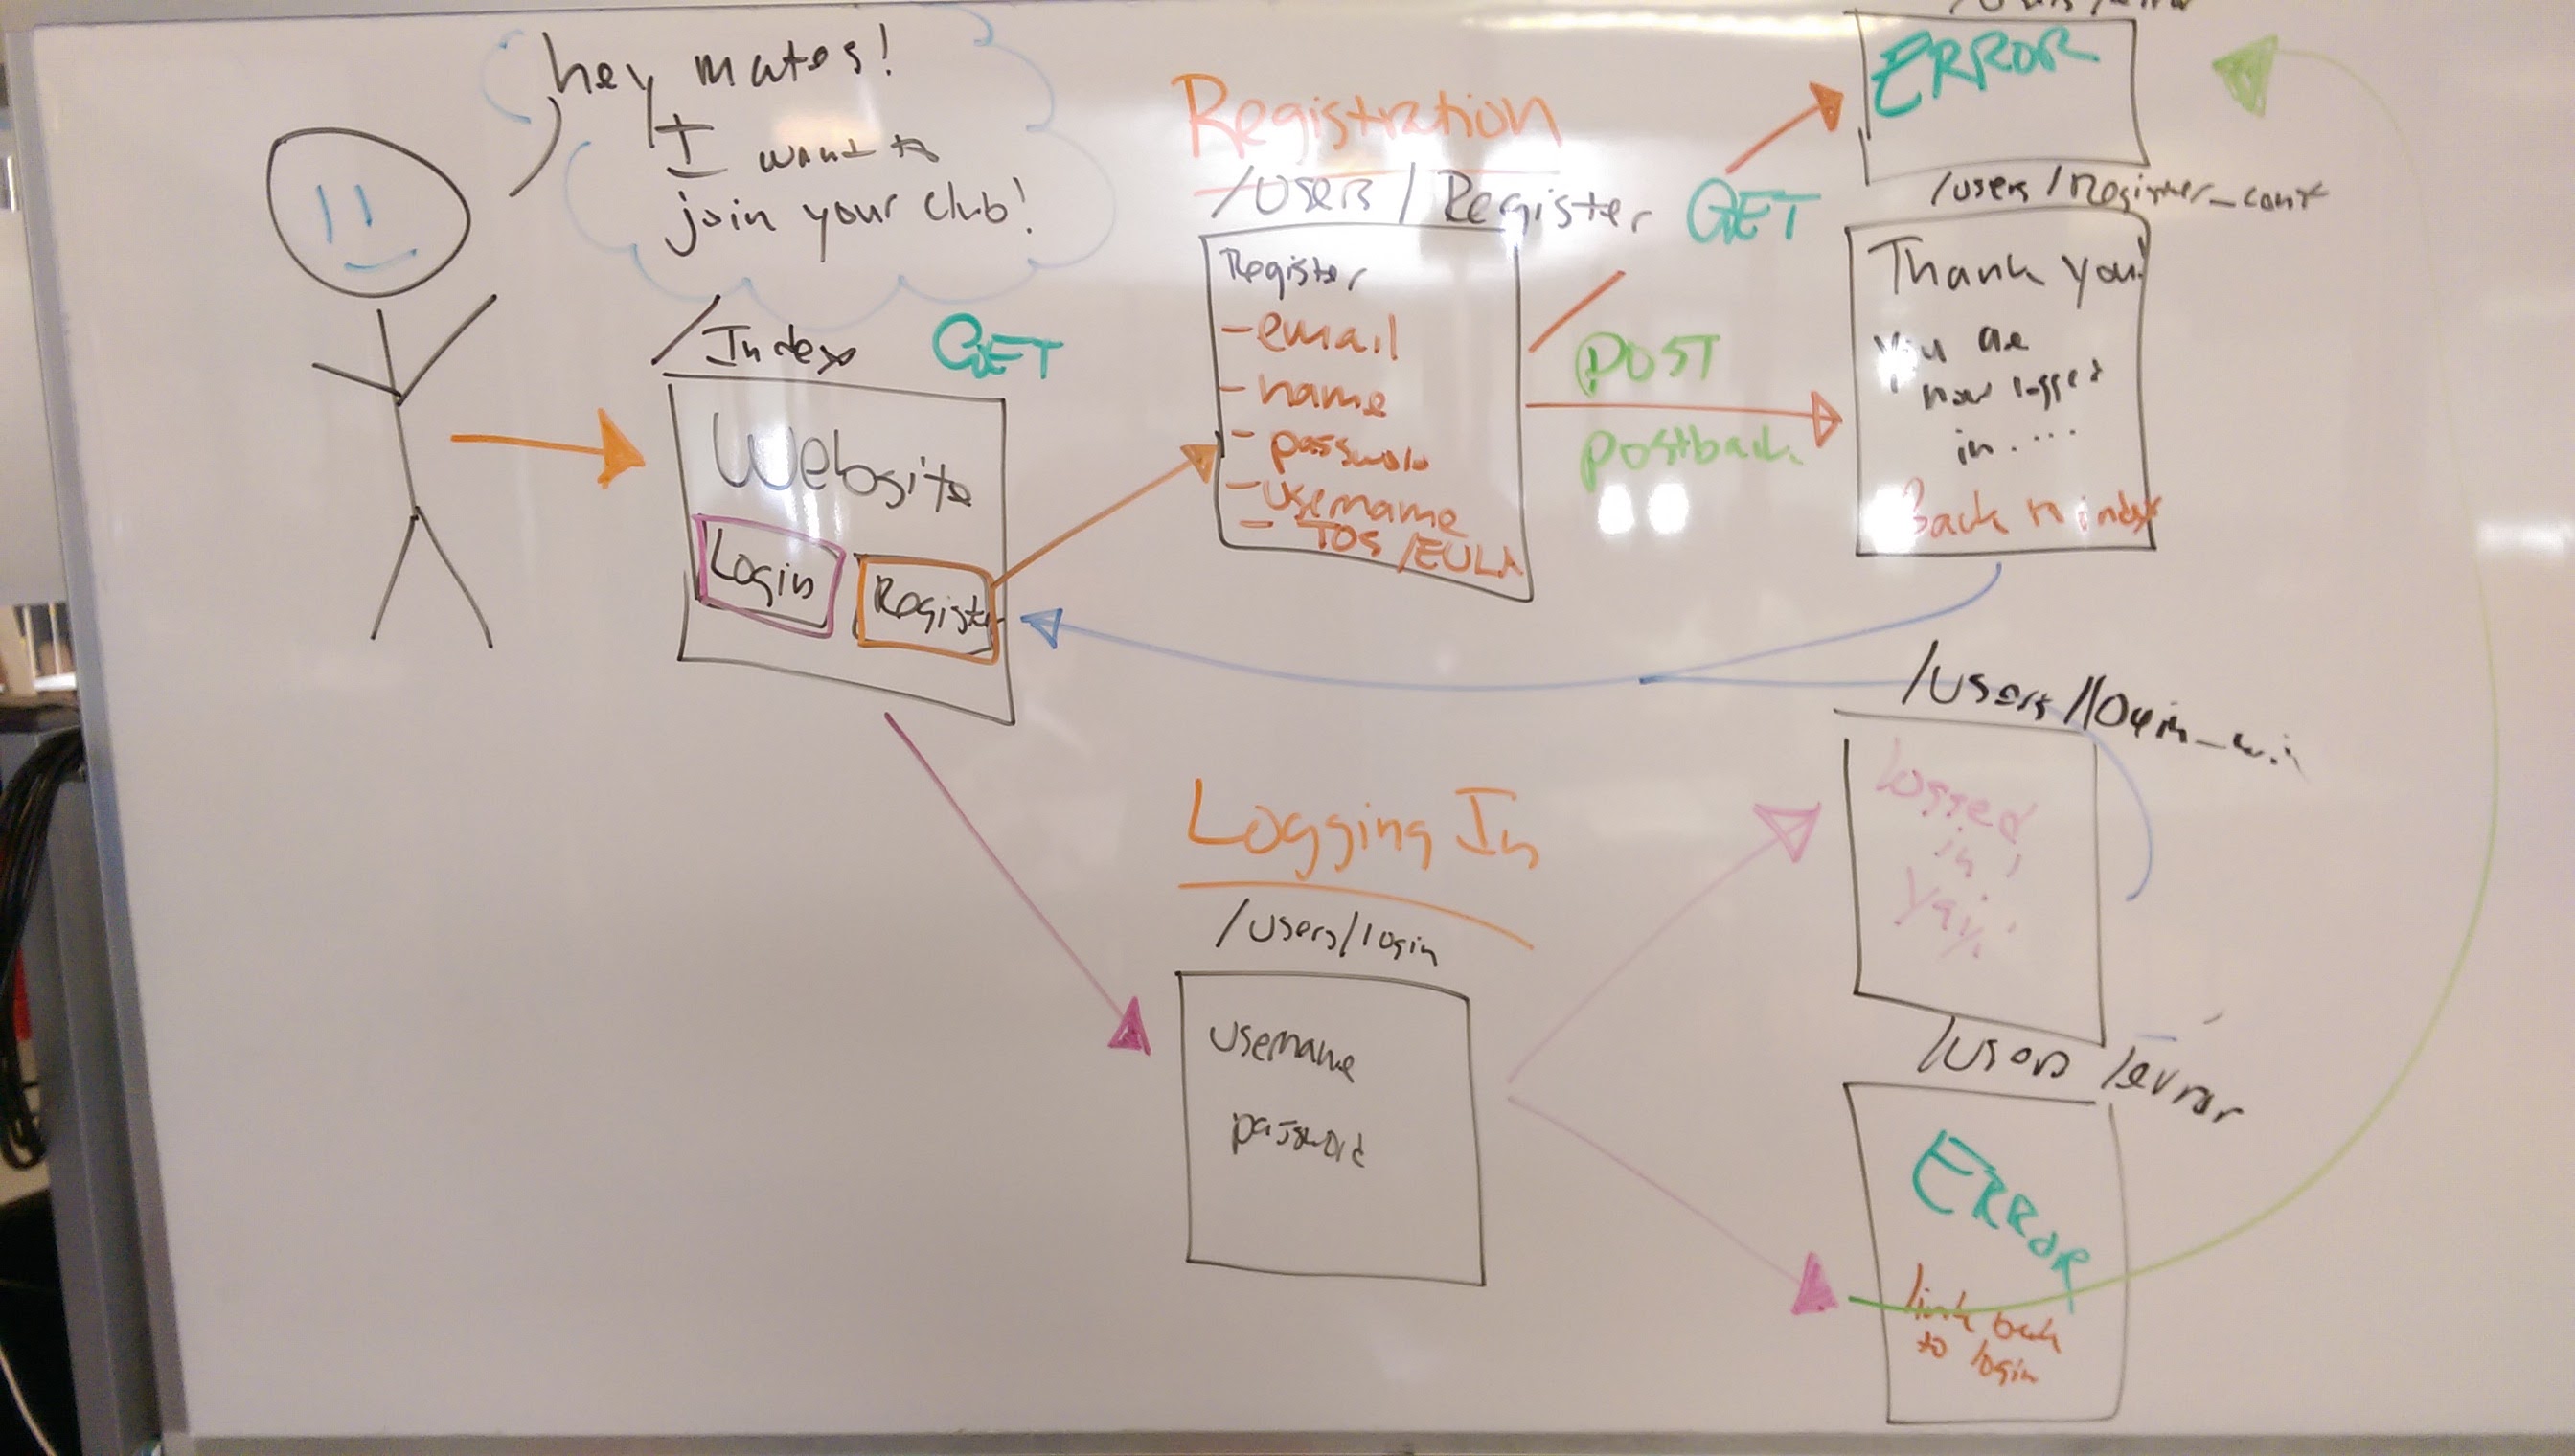 hey mates!
I want to
join your club!
/Index GET
Website
Login
Register
Registration
/Users/Register
Register
- email
- name
- password
- username
- TOS/EULA
GET
POST
postback
ERROR
/users/Register_conf
Thank you!
You are
now logged
in....
Back to index
Logging In
/users/login
username
password
/users/login_win
logged
in!
Yay!
/users/error
ERROR
link back
to login